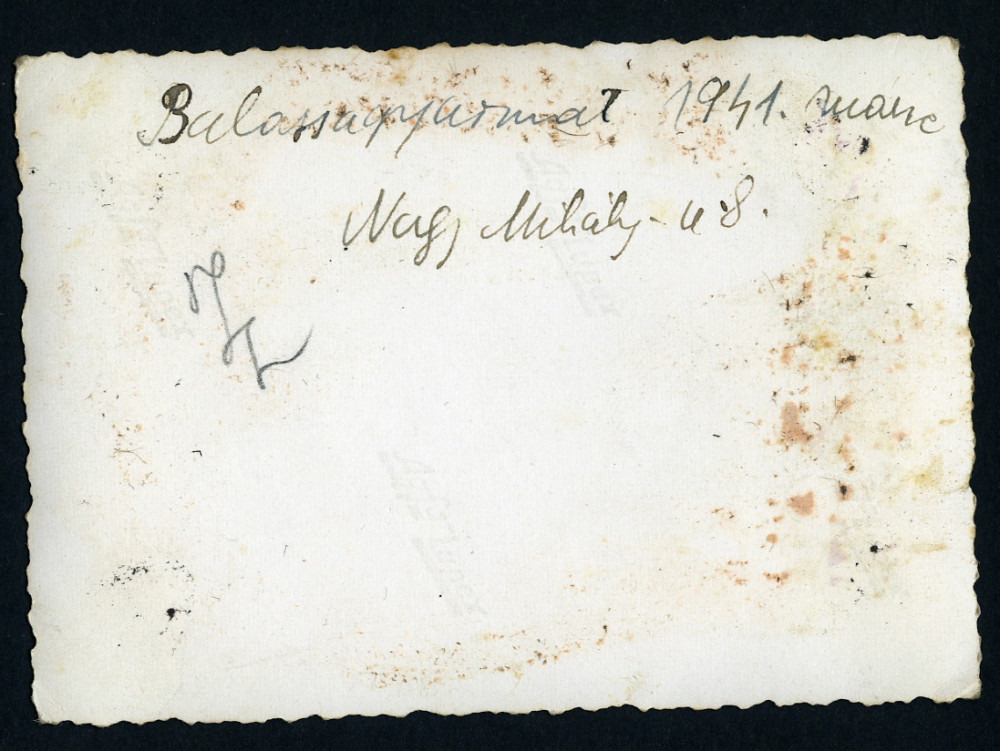 Balassagyarmat 1941. márc
Nagy Mihály u 8.